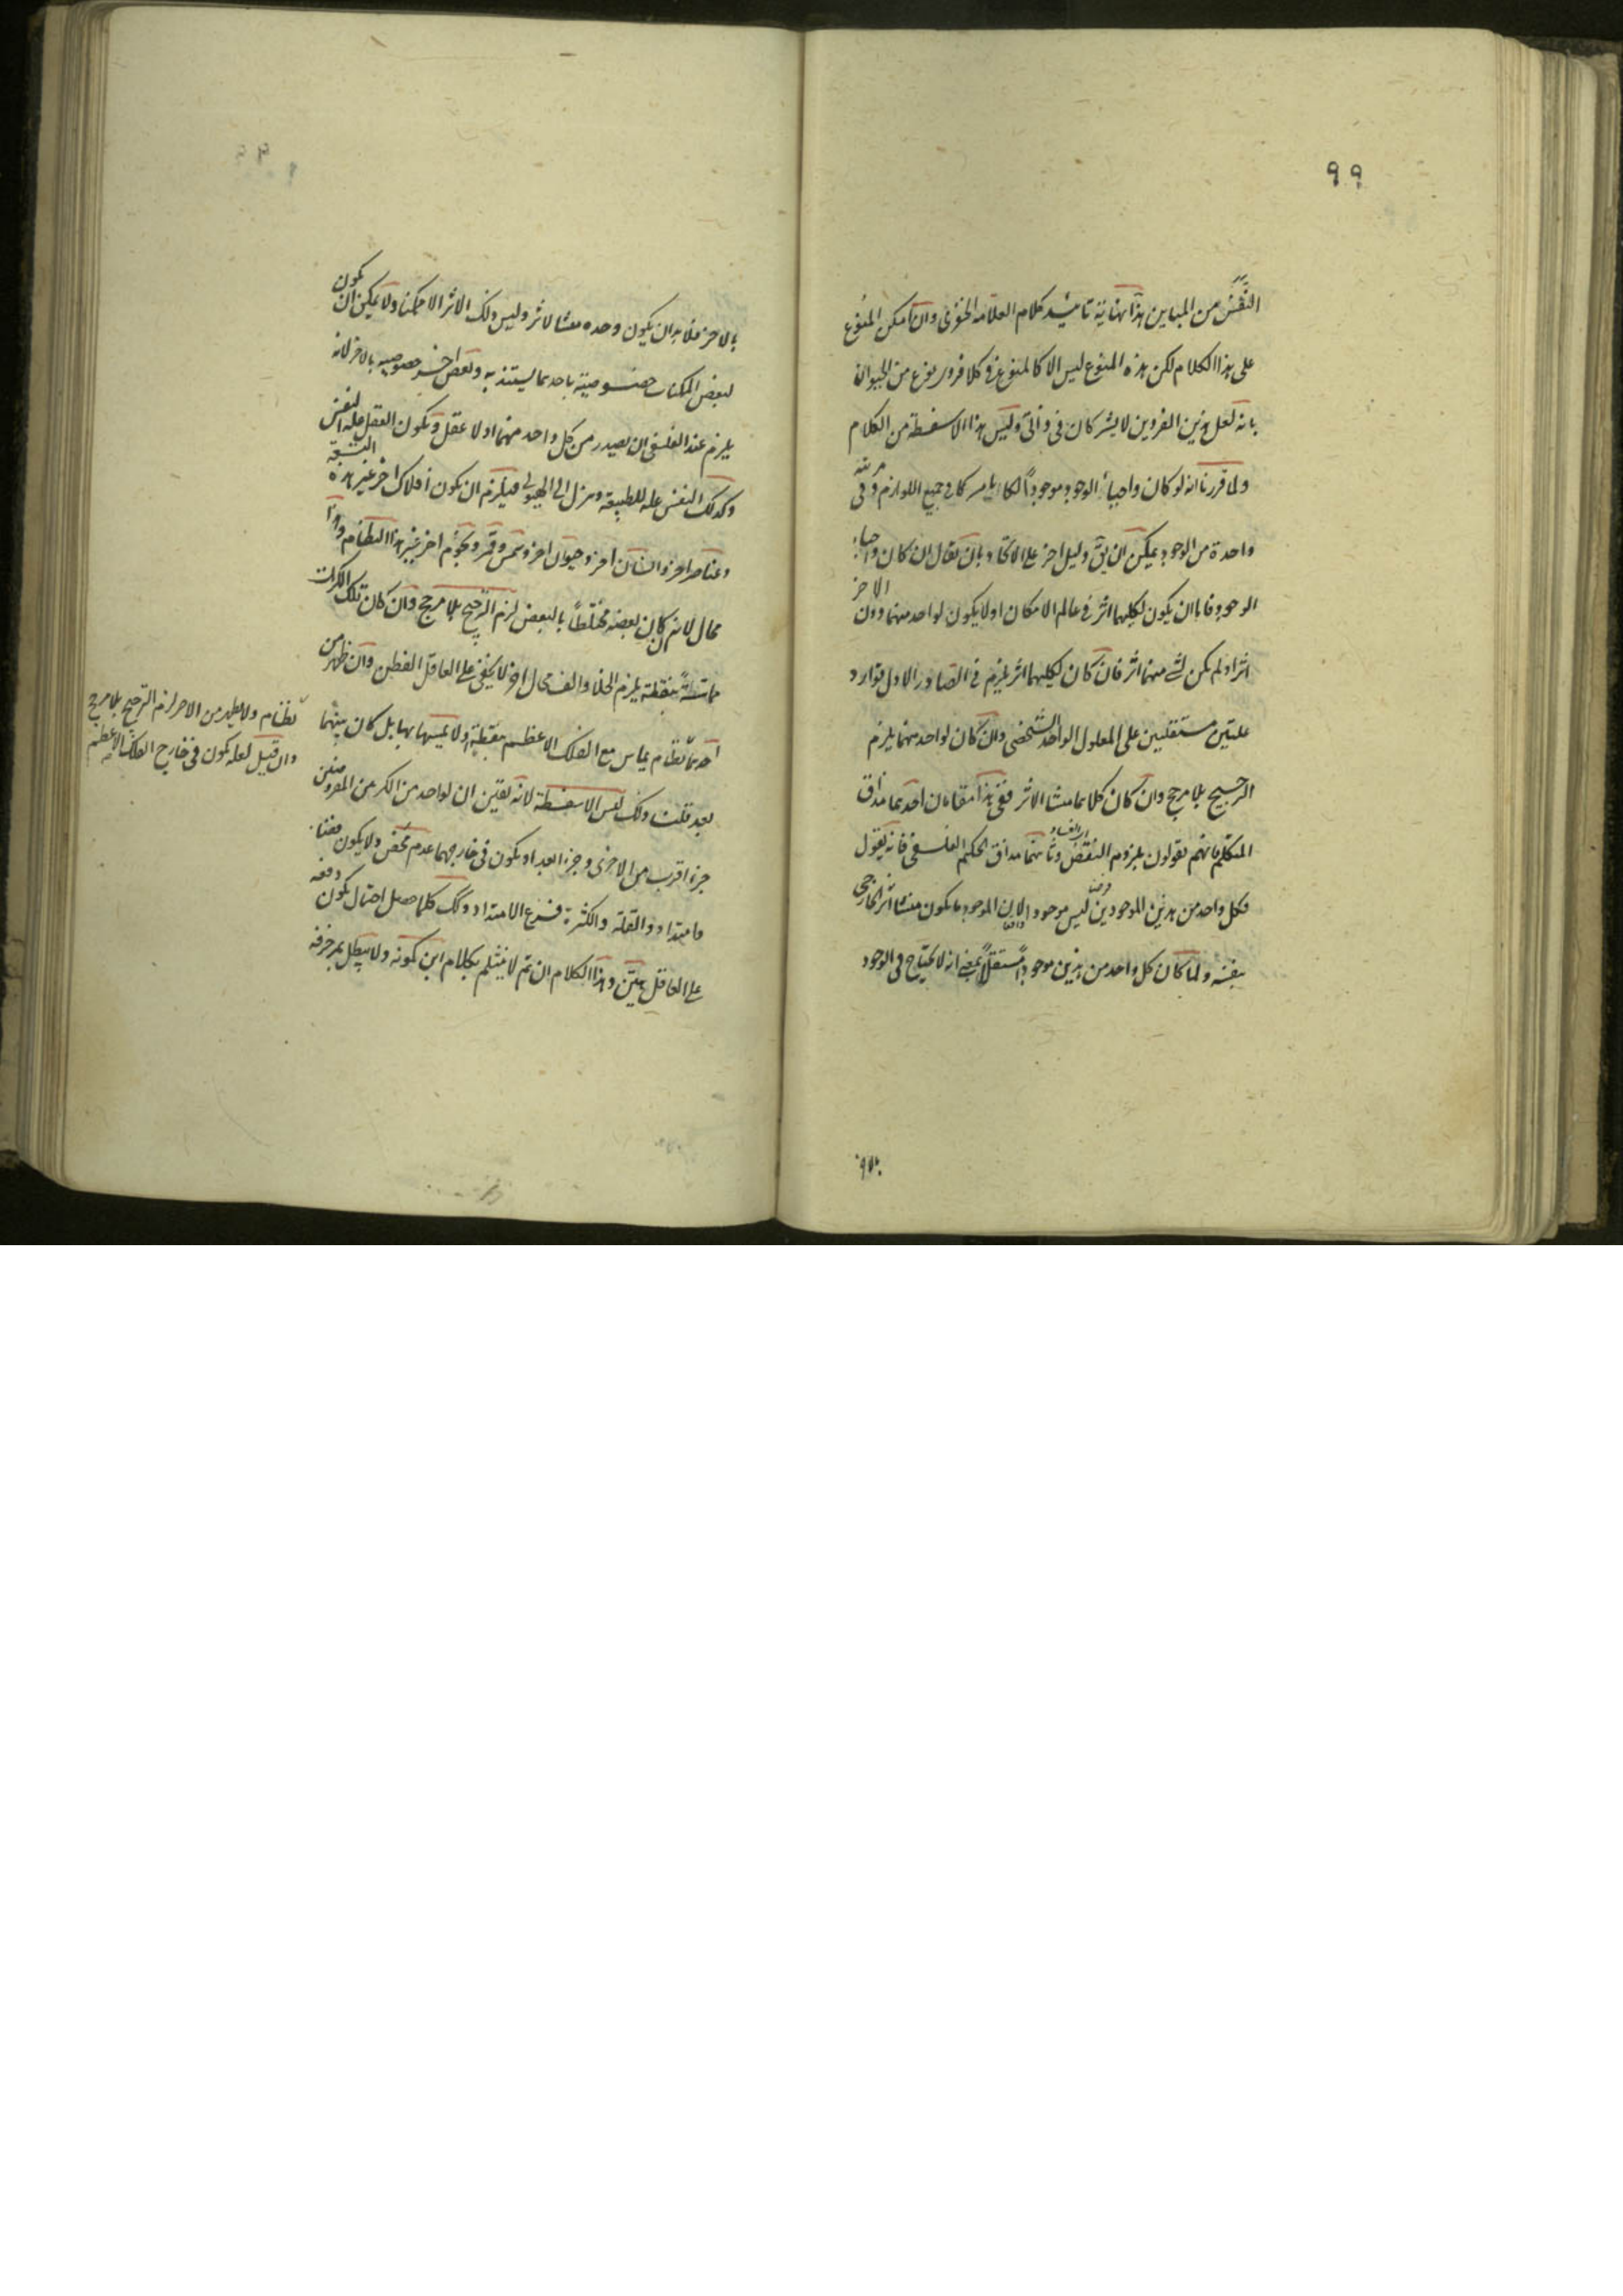 ٩٩
النقض من المباين هذا نهاية تأييد كلام العلامة الخفري وان امكن المنوع
على هذا الكلام لكن هذه المنوع ليس الا كالمنوع في كلا فردي نوع من الحيوان
بانه لعل هذين الفردين لا يشتركان في ذاتي وليس هذا الا سفسطة من الكلام
ولما قررنا انه لو كان واجبا الوجود موجودا لكانا مشركا في جميع اللوازم وفي مرتبة
واحدة من الوجود يمكن ان يق دليل اخر على الاتحاد بان يقال ان كان واجبا
الوجود فاما ان يكون لكليهما اثر في عالم الامكان او لا يكون لواحد منهما دون الاخر
اثر او لم يكن لشيء منهما اثر فان كان لكليهما اثر يلزم في الصادر الاول توارد
علتين مستقلتين على المعلول الواحد الشخصي وان كان لواحد منهما يلزم
الترجيح بلا مرجح وان كان كلاهما منشا الاثر ففي هذا مقامان احدهما مذاق
المتكلم فانهم يقولون بلزوم النقض وثانيهما مذاق الحكيم الفلسفي فانه يقول
فكل واحد من هذين الموجودين ليس موجودا لان الموجود ما يكون منشا اثر خارجي
بنفسه ولما كان كل واحد من هذين موجودا مستقلا بمعنى انه لا يحتاج في الوجود
بالاخر فلا بد ان يكون وحده منشا لاثر وليس ذلك الاثر الا ممكنا ولا يمكن ان يكون
لبعض الممكنات خصوصية باحدهما ليستند به ولبعض اخر خصوصية بالاخر لانه
يلزم عند الفلسفي ان يصدر من كل واحد منهما اولا عقل ويكون العقل علة لنفس
وكذلك النفس علة للطبيعة ونزل الى الهيولى فيلزم ان يكون افلاك اخر غير هذه
وعناصر اخر وانسان اخر وحيوان اخر وشمس وقمر ونجوم اخر غير هذا النظام وهذا
محال لانه ان كان بعضه مختلطا بالبعض لزم الترجيح بلا مرجح وان كان تلك الكرات
مماسة بنقطة يلزم الخلا والف محال اخر لا يخفى على العاقل الفطن وان ظهر من
احدهما نظام يماس مع الفلك الاعظم بنقطة او لا يمسها بها بل كان بينهما
بعد قلت ذلك ليس الا سفسطة لانه يقين ان لواحد من الكر من المفروضين
جزء اقرب من الاخرى وجزء ابعد او يكون في خارجهما عدم محض ولا يكون فضاء
وامتداد والقلة والكثرة فرع الامتداد وكك كلما حصل احتمال يكون دفعه
على العاقل هين وهذا الكلام ان تم لا ينثلم بكلام ابن كمونه ولا يبطل بمزخرفه
نظام ولا يظهر من الاخر لزم الترجيح بلا مرجح
وان قيل لعله يكون في خارج الفلك الاعظم